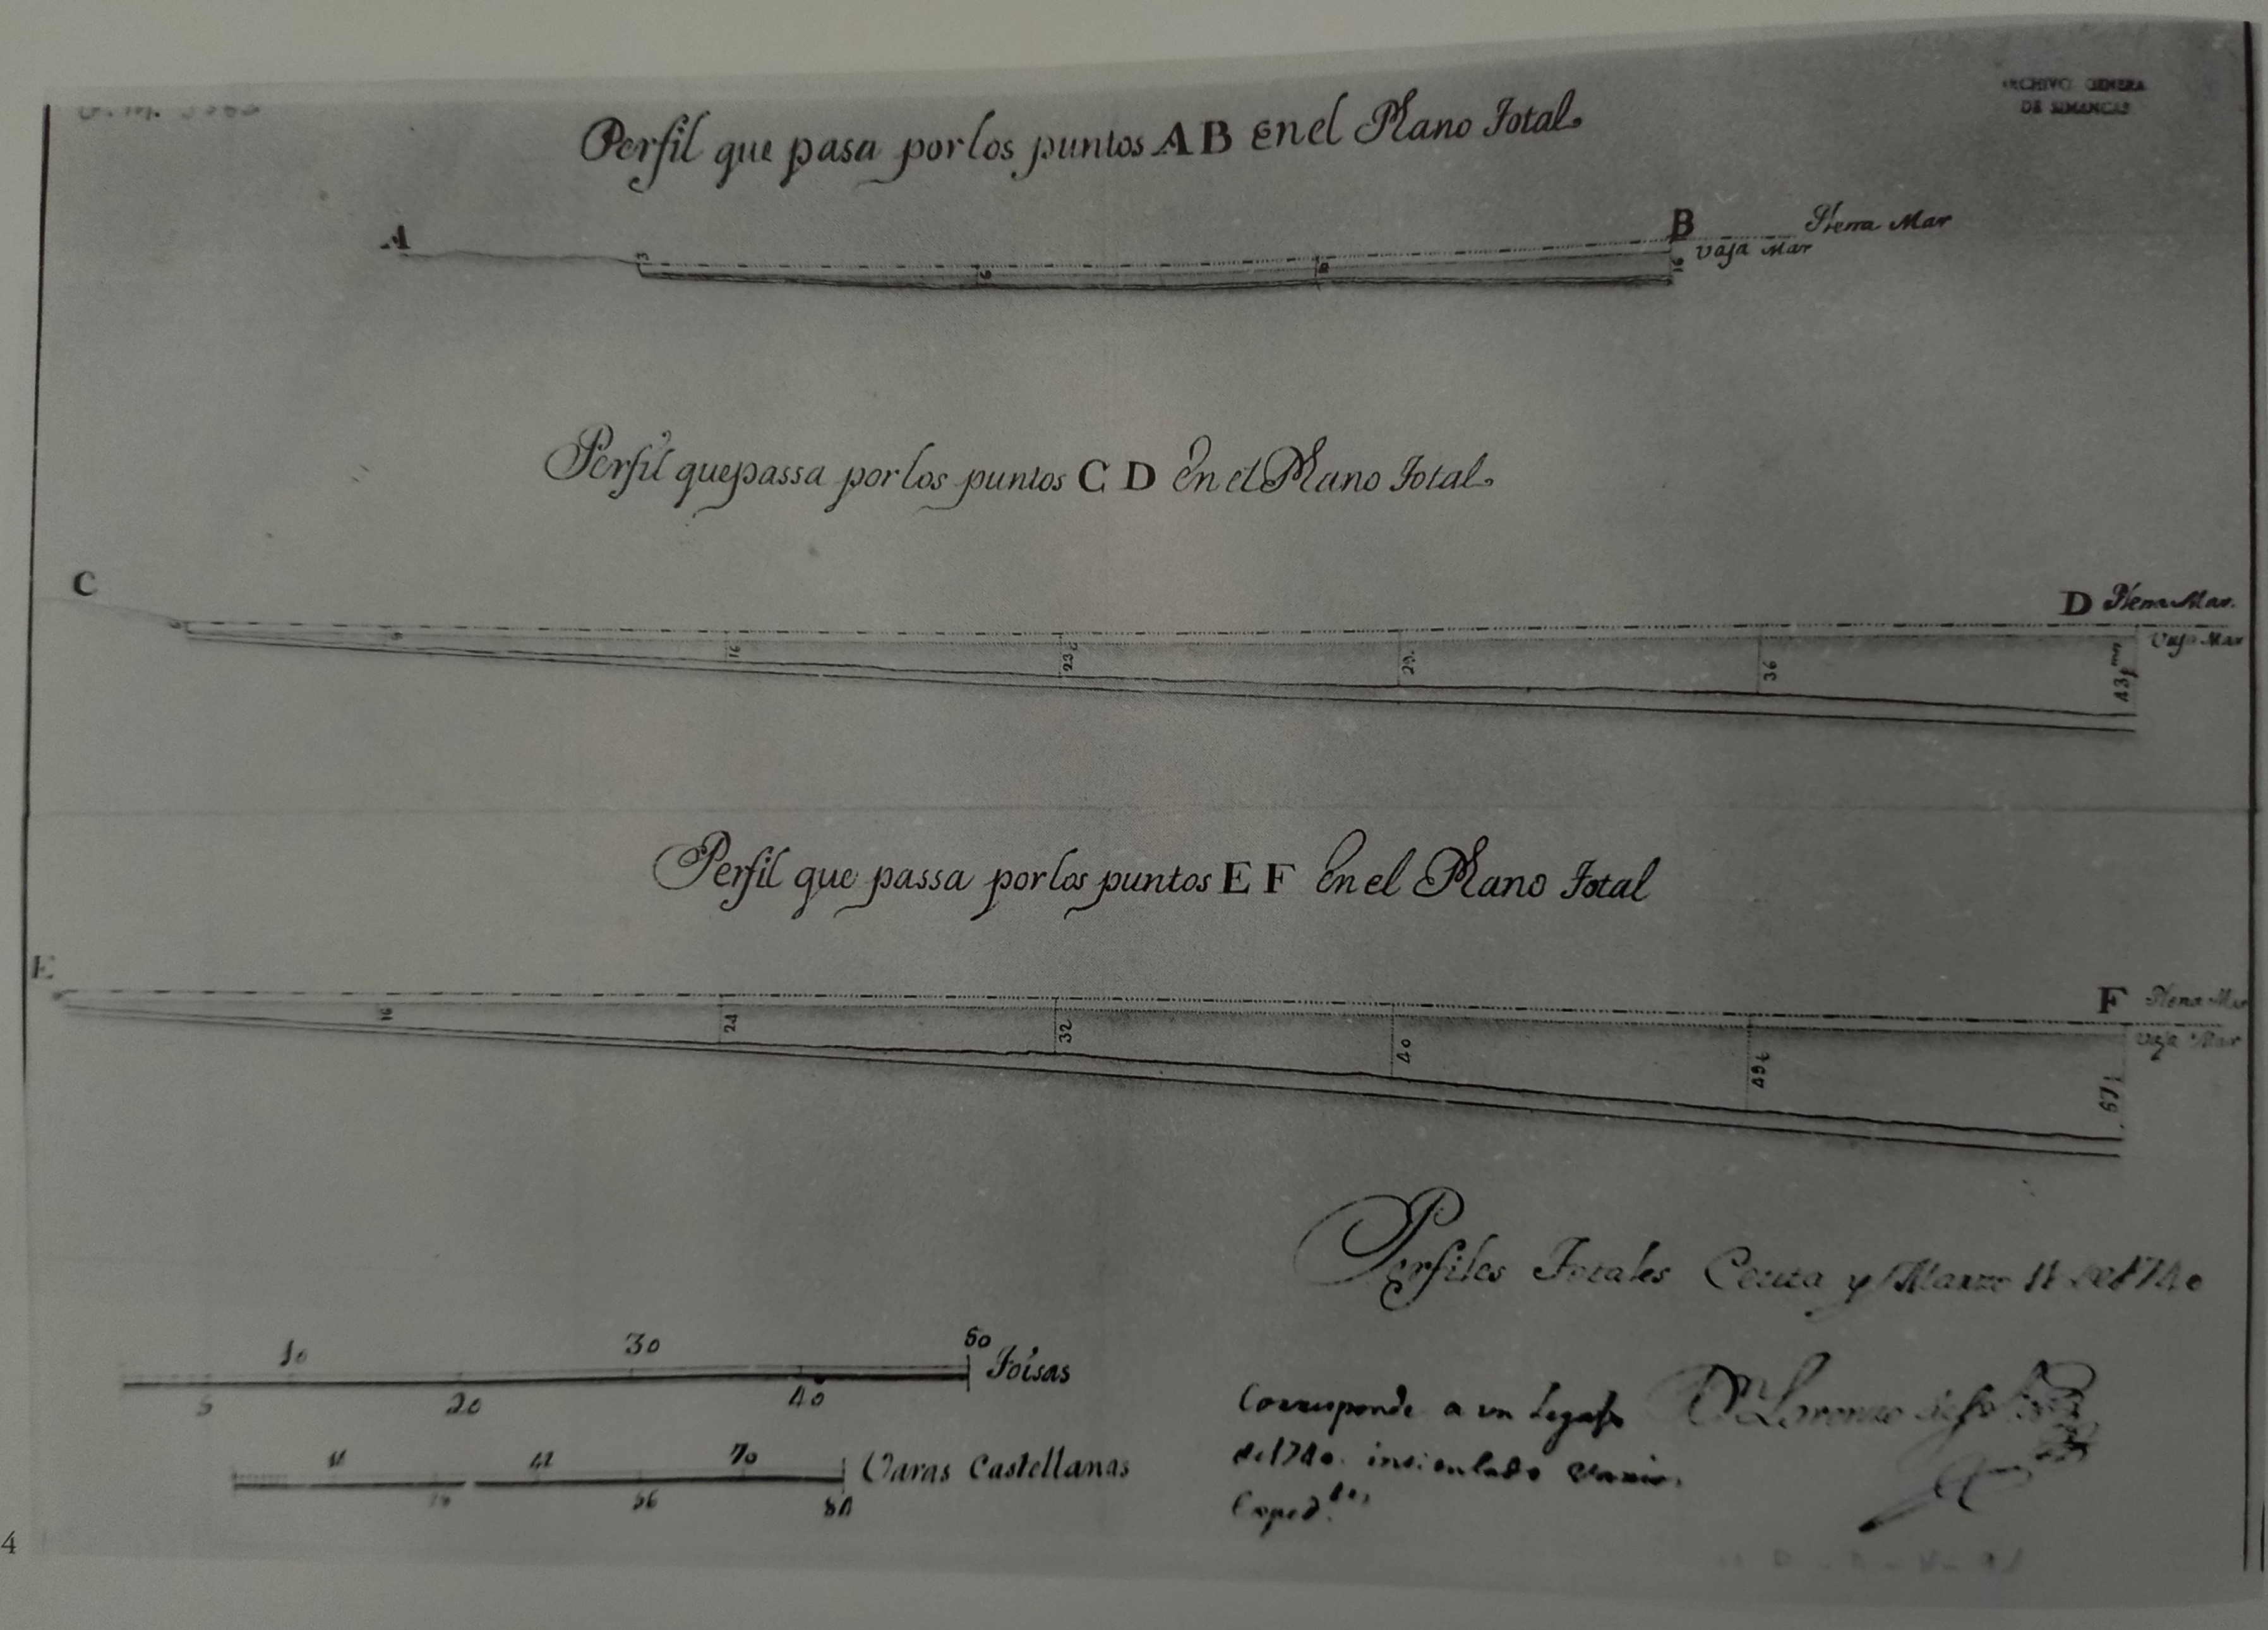 ARCHIVO GENERA
DE SIMANCAS
Perfil que pasa por los puntos A B en el Plano Total.
A
B
Plena Mar
Vaja Mar
3
6
8
16
Perfil que passa por los puntos C D En el Plano Total.
C
D
Plena Mar.
Vaja Mar
9
16
23
29.
36
43
Perfil que passa por los puntos E F En el Plano Total
E
F
Plena Mar
Vaja Mar
16
24
32
40
49
Perfiles Totales Ceuta y Marzo de 1740
10 30 50
Toisas
5 20 40
70
Varas Castellanas
56 84
Corresponde a un Legajo
de 1740. intitulado varios
Exped.tes
Dn Lorenzo de
4